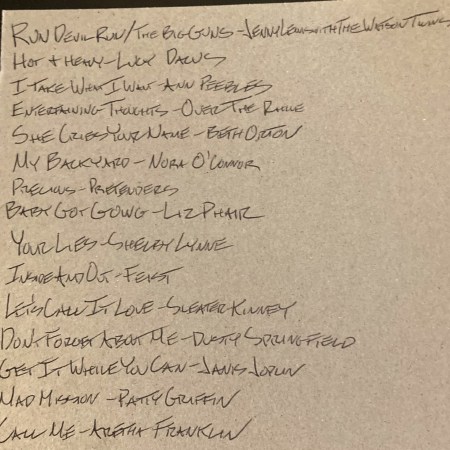 Run Devil Run/The Big Guns - Jenny Lewis with The Watson Twins
Hot + Heavy - Lucy Dacus
I Take What I Want - Ann Peebles
Entertaining Thoughts - Over The Rhine
She Cries Your Name - Beth Orton
My Backyard - Nora O'Connor
Precious - Pretenders
Baby Got Going - Liz Phair
Your Lies - Shelby Lynne
Inside And Out - Feist
Let's Call It Love - Sleater-Kinney
Don't Forget About Me - Dusty Springfield
Get It While You Can - Janis Joplin
Mad Mission - Patty Griffin
Call Me - Aretha Franklin